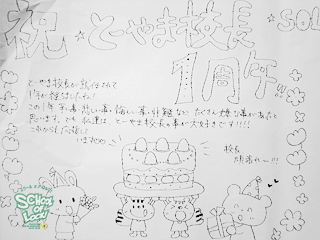 祝 とーやま校長 ☆SOL
1周年!!
とーやま校長が就任されて
1年が経ちましたね!
この1年、楽しい事、悲しい事、悔しい事、
など たくさん 事があったと
思います。でも、私達は とーやま校長の事が大好きです!!!!
これからも 応援して
います
校長
頑張れ〜!!!
SCHOOL OF LOCK!